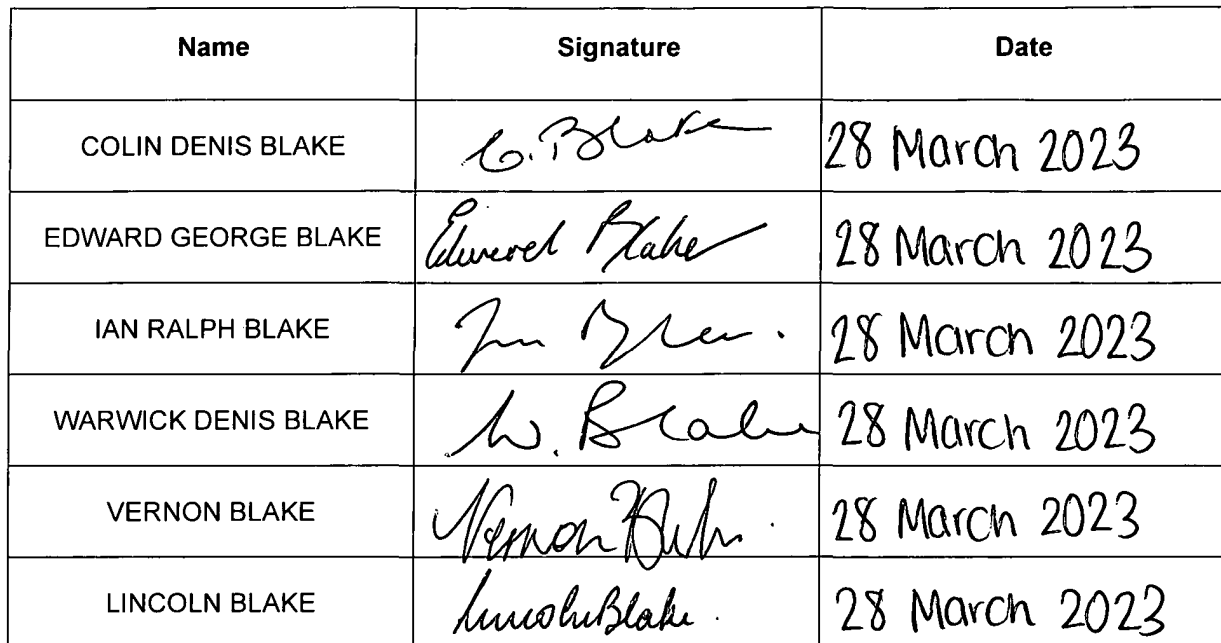 Name Signature Date
COLIN DENIS BLAKE C. Blake 28 March 2023
EDWARD GEORGE BLAKE Edward Blake 28 March 2023
IAN RALPH BLAKE 28 March 2023
WARWICK DENIS BLAKE W. Blake 28 March 2023
VERNON BLAKE Vernon 28 March 2023
LINCOLN BLAKE Lincoln Blake. 28 March 2023